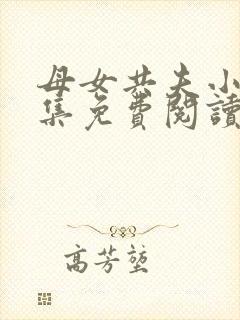 母女共夫小
集免費閱讀
高芳堃